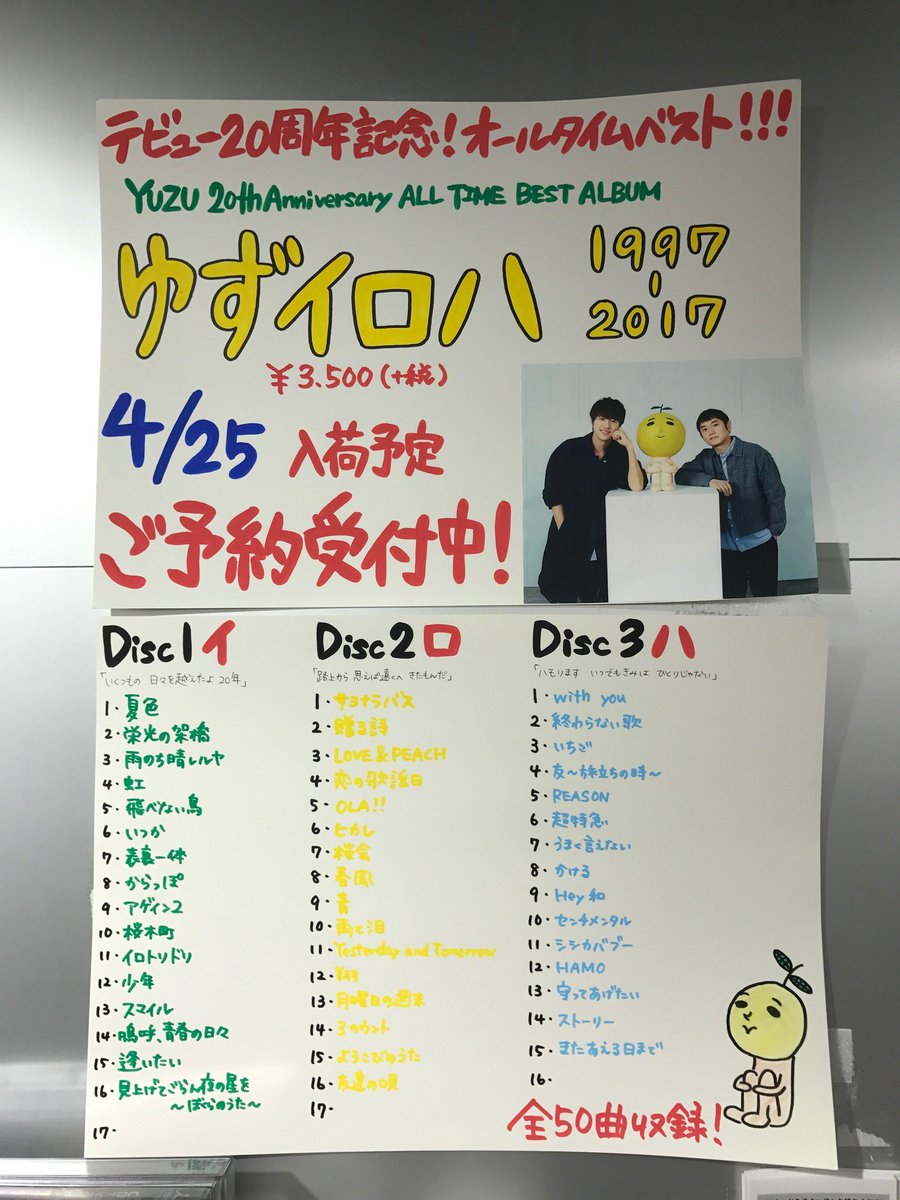 デビュー20周年記念！オールタイムベスト!!!
YUZU 20th Anniversary ALL TIME BEST ALBUM
ゆずイロハ 1997-2017
¥3.500(+税)
4/25 入荷予定
ご予約受付中！
Disc1イ
「いくつもの 日々を越えたよ 20年」
1・夏色
2・栄光の架橋
3・雨のち晴レルヤ
4・虹
5・飛べない鳥
6・いつか
7・表裏一体
8・からっぽ
9・アゲイン2
10・桜木町
11・イロトリドリ
12・少年
13・スマイル
14・嗚呼、青春の日々
15・逢いたい
16・見上げてごらん夜の星を
〜ぼくらのうた〜
17・
Disc2ロ
「路上から 思えば遠くへ きたもんだ」
1・サヨナラバス
2・贈る詩
3・LOVE & PEACH
4・恋の歌謡日
5・OLA!!
6・ヒカレ
7・桜会
8・春風
9・青
10・雨と泪
11・Yesterday and Tomorrow
12・翔
13・月曜日の週末
14・3カウント
15・よろこびのうた
16・友達の唄
17・
Disc3ハ
「ハモります いつでもきみは ひとりじゃない」
1・with you
2・終わらない歌
3・いちご
4・友〜旅立ちの時〜
5・REASON
6・超特急
7・うまく言えない
8・かける
9・Hey和
10・センチメンタル
11・シシカバブー
12・HAMO
13・守ってあげたい
14・ストーリー
15・またあえる日まで
16・
全50曲収録！